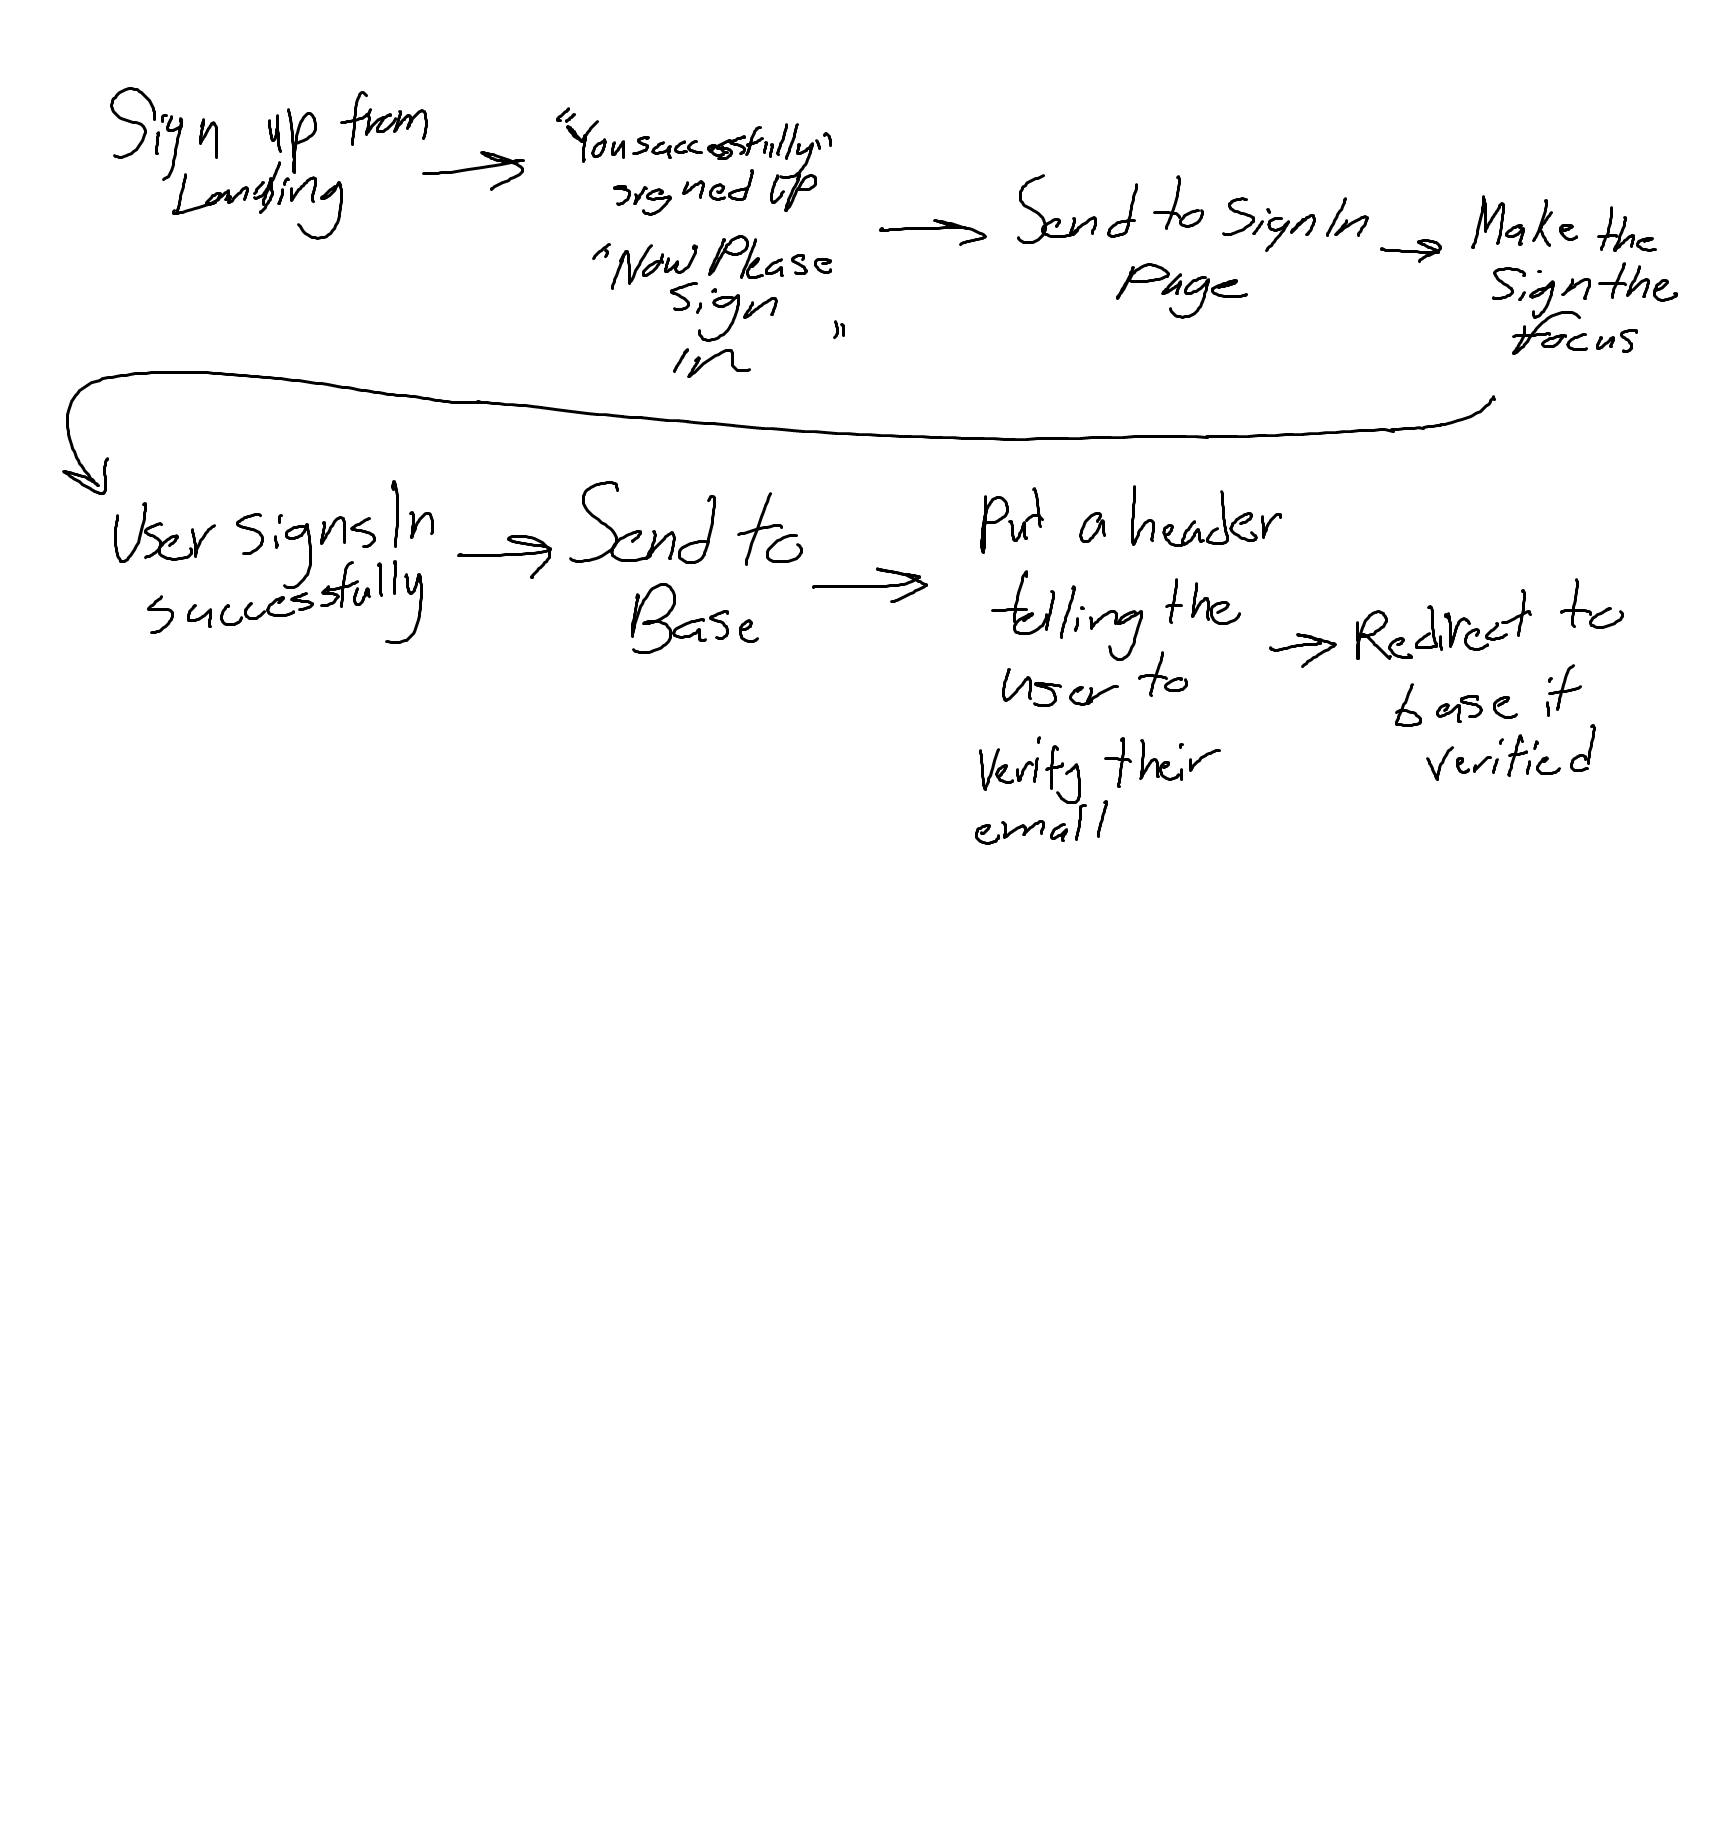 Sign up from
Landing
"You successfully"
signed up
"Now Please
sign
in "
Send to Sign In
Page
Make the
Sign the
focus
User signs In
successfully
Send to
Base
Put a header
telling the
user to
Verify their
email
Redirect to
base if
verified